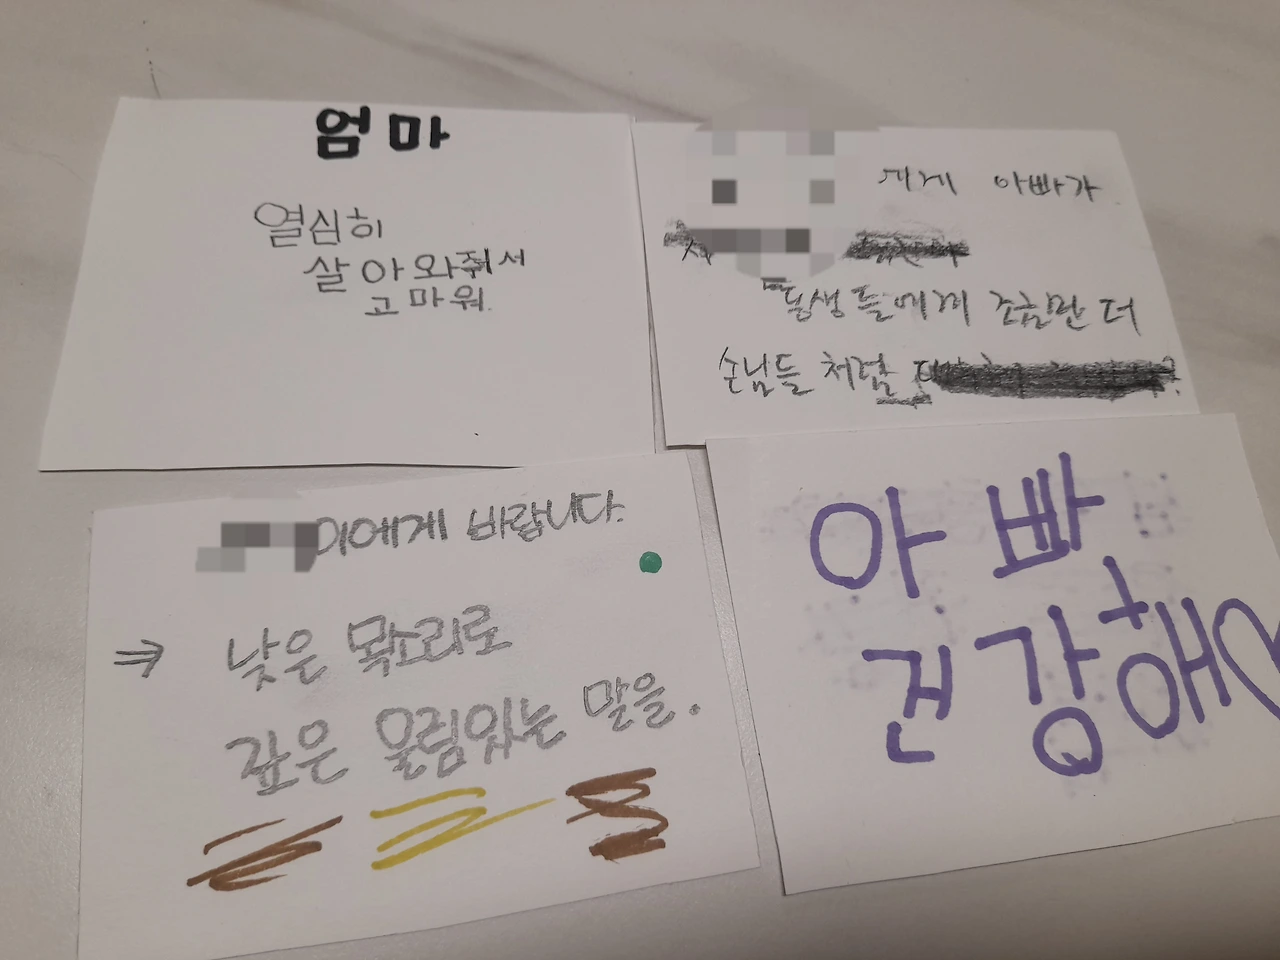 엄마
열심히
살아와줘서
고마워.
에게 아빠가
동생들에게 조금만 더
손님들 처럼
이에게 바랍니다.
⇒ 낮은 목소리로
깊은 울림있는 말을.
아빠
건강해♡